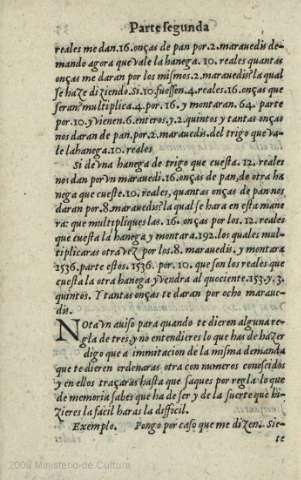 Parte segunda
reales me dan.16.onças de pan por.2.marauedis de-
mando agora que vale la hanega.10.reales quantas
onças me daran por los mismos.2.marauedis? la qual
se haze diziendo. Si.10.fuessen.4.reales.16.onças que
seran? multiplica.4.por.16.y montaran.64. parte
por.10.y vienen.6.enteros,y.2.quintos y tantas onças
nos daran de pan,por.2.marauedis.del trigo que va-
le la hanega.10.reales
Si de vna hanega de trigo que cuesta.12.reales
nos dan por vn marauedi.16.onças de pan,de otra ha
nega que cueste.10.reales, quantas onças de pan nos
daran por.8.marauedis? la qual se hara en esta mane
ra: que multipliques las.16.onças por los.12.reales
que cuesta la hanega y montara.192.los quales mul-
tiplicaras otra vez por los.8. marauedi. y montara
1536.parte estos.1536. por.10.que son los reales que
cuesta la otra hanega y vendra al quociente.153.y.3.
quintos. Y tantas onças te daran por ocho maraue-
dis.
Nota vn auiso para quando te dieren alguna re-
gla de tres,y no entendieres lo que has de hazer
digo que a immitacion de la misma demanda
que te dieren ordenaras otra con numeros conoscidos
y en ellos traçaras hasta que saques por regla lo que
de memoria sabes que ha de ser y de la suerte que hi-
zieres la facil haras la difficil.
Exemplo. Pongo por caso que me dizen. Sie-
te
2009 Ministerio de Cultura